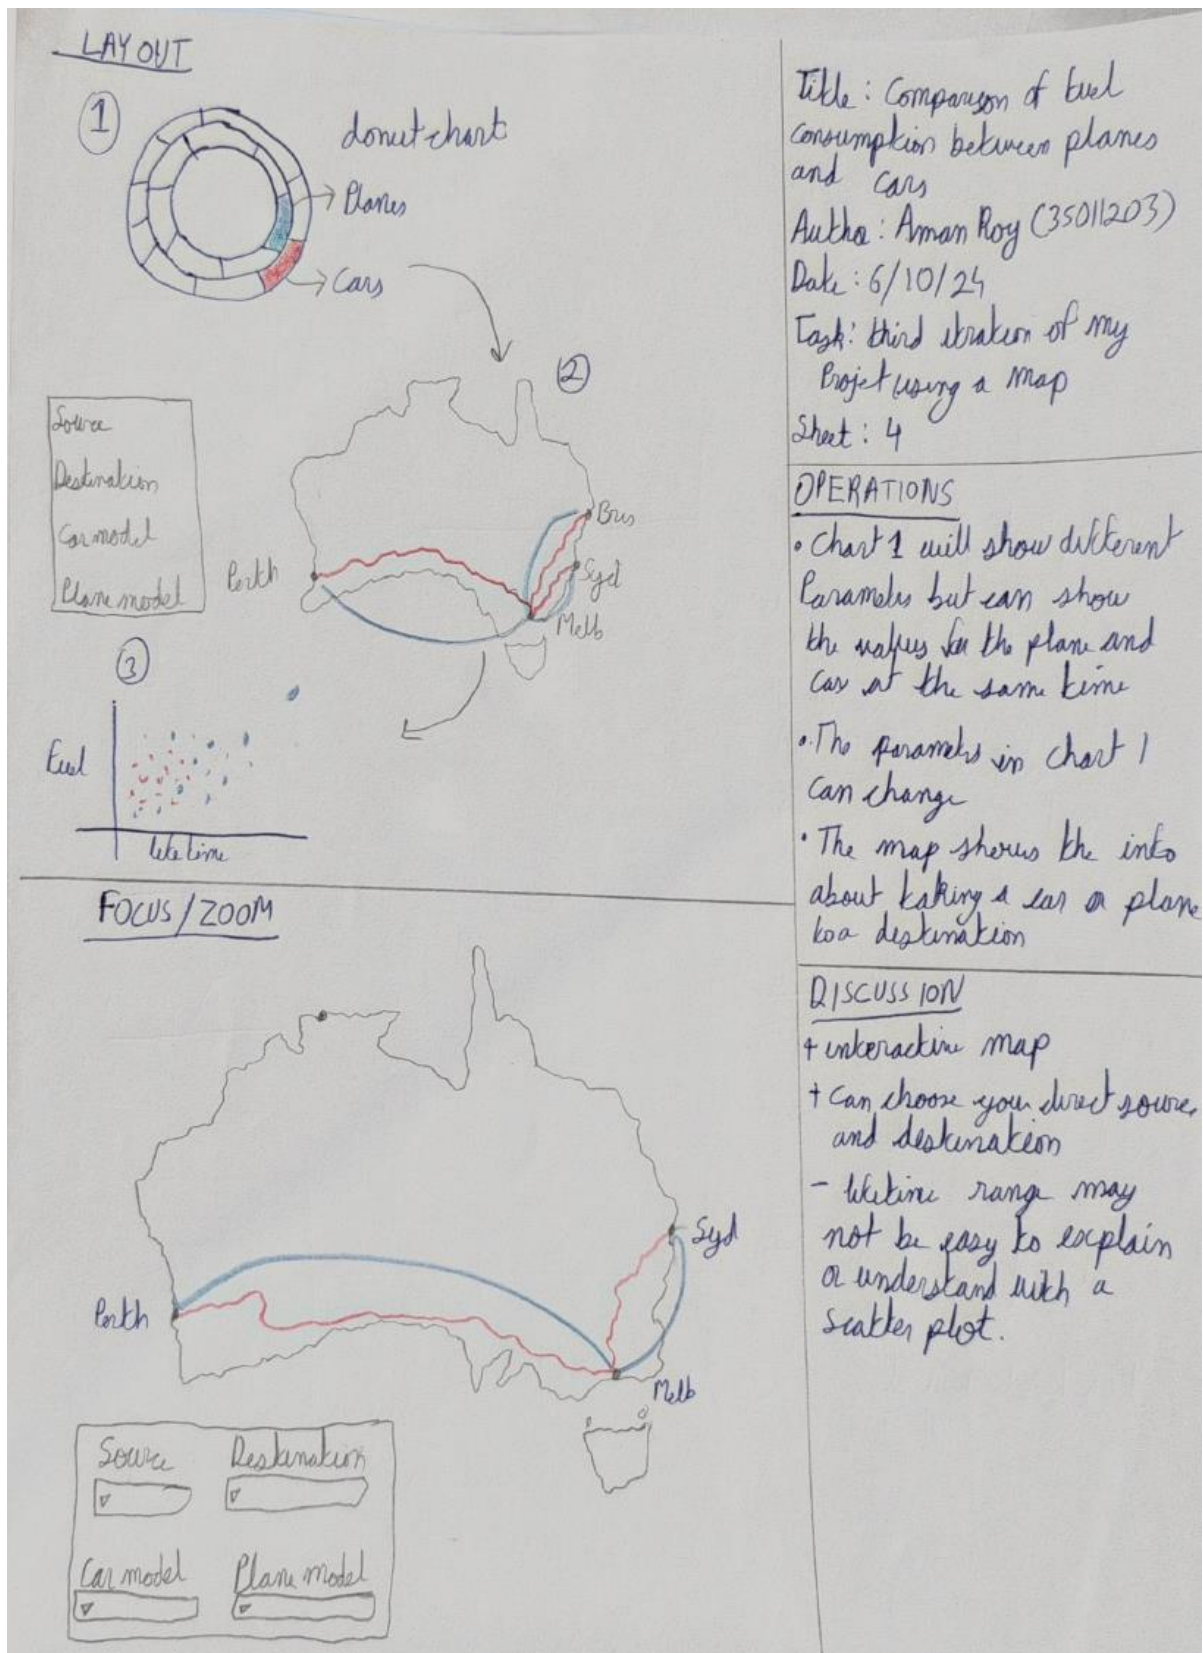 LAYOUT
1
donut chart
Planes
Cars
2
Source
Destination
Car model
Plane model
Bris
Syd
Perth
Melb
3
Fuel
lifetime
FOCUS/ZOOM
Syd
Perth
Melb
Source
Destination
Car model
Plane model
Title: Comparison of fuel
consumption between planes
and cars
Author: Aman Roy (35011203)
Date: 6/10/24
Task: third itration of my
Projet using a map
Sheet: 4
OPERATIONS
• Chart 1 will show different
Parameters but can show
the values for the plane and
car at the same time
• The parameters in chart 1
can change
• The map shows the info
about taking a car or plane
to a destination
DISCUSSION
+ interactive map
+ Can choose your direct source
and destination
- lifetime range may
not be easy to explain
or understand with a
scatter plot.